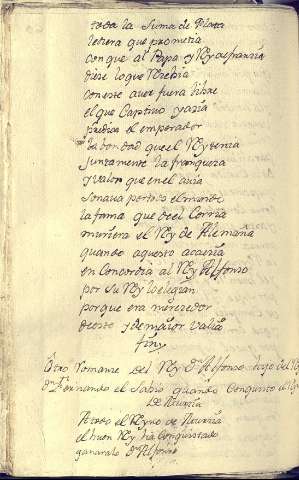 toda la suma de Plata
letiera que prometia
con que al Papa y Rey de francia
diese lo que devia
con este aver fuera libre
el que Captivo yazia
el emperador
la bondad que el Rey tenia
juntamente la franqueza
y valor que en el avia
sonava por todo el mundo
la fama que de el Corria
muriera el Rey de Alemaña
quando aquesto acaecia
en Concordia al Rey Alfonso
por su Rey le elegian
porque era merecedor
de esto y de maior valia
fin
Otro Romance del Rey Dn Alfonso hijo del Rey
Dn Fernando el Sabio quando Conquisto el Reyno
De Murcia
A todo el Reyno de Murcia
el buen Rey ha conquistado
ganaralo Dn Alfonso